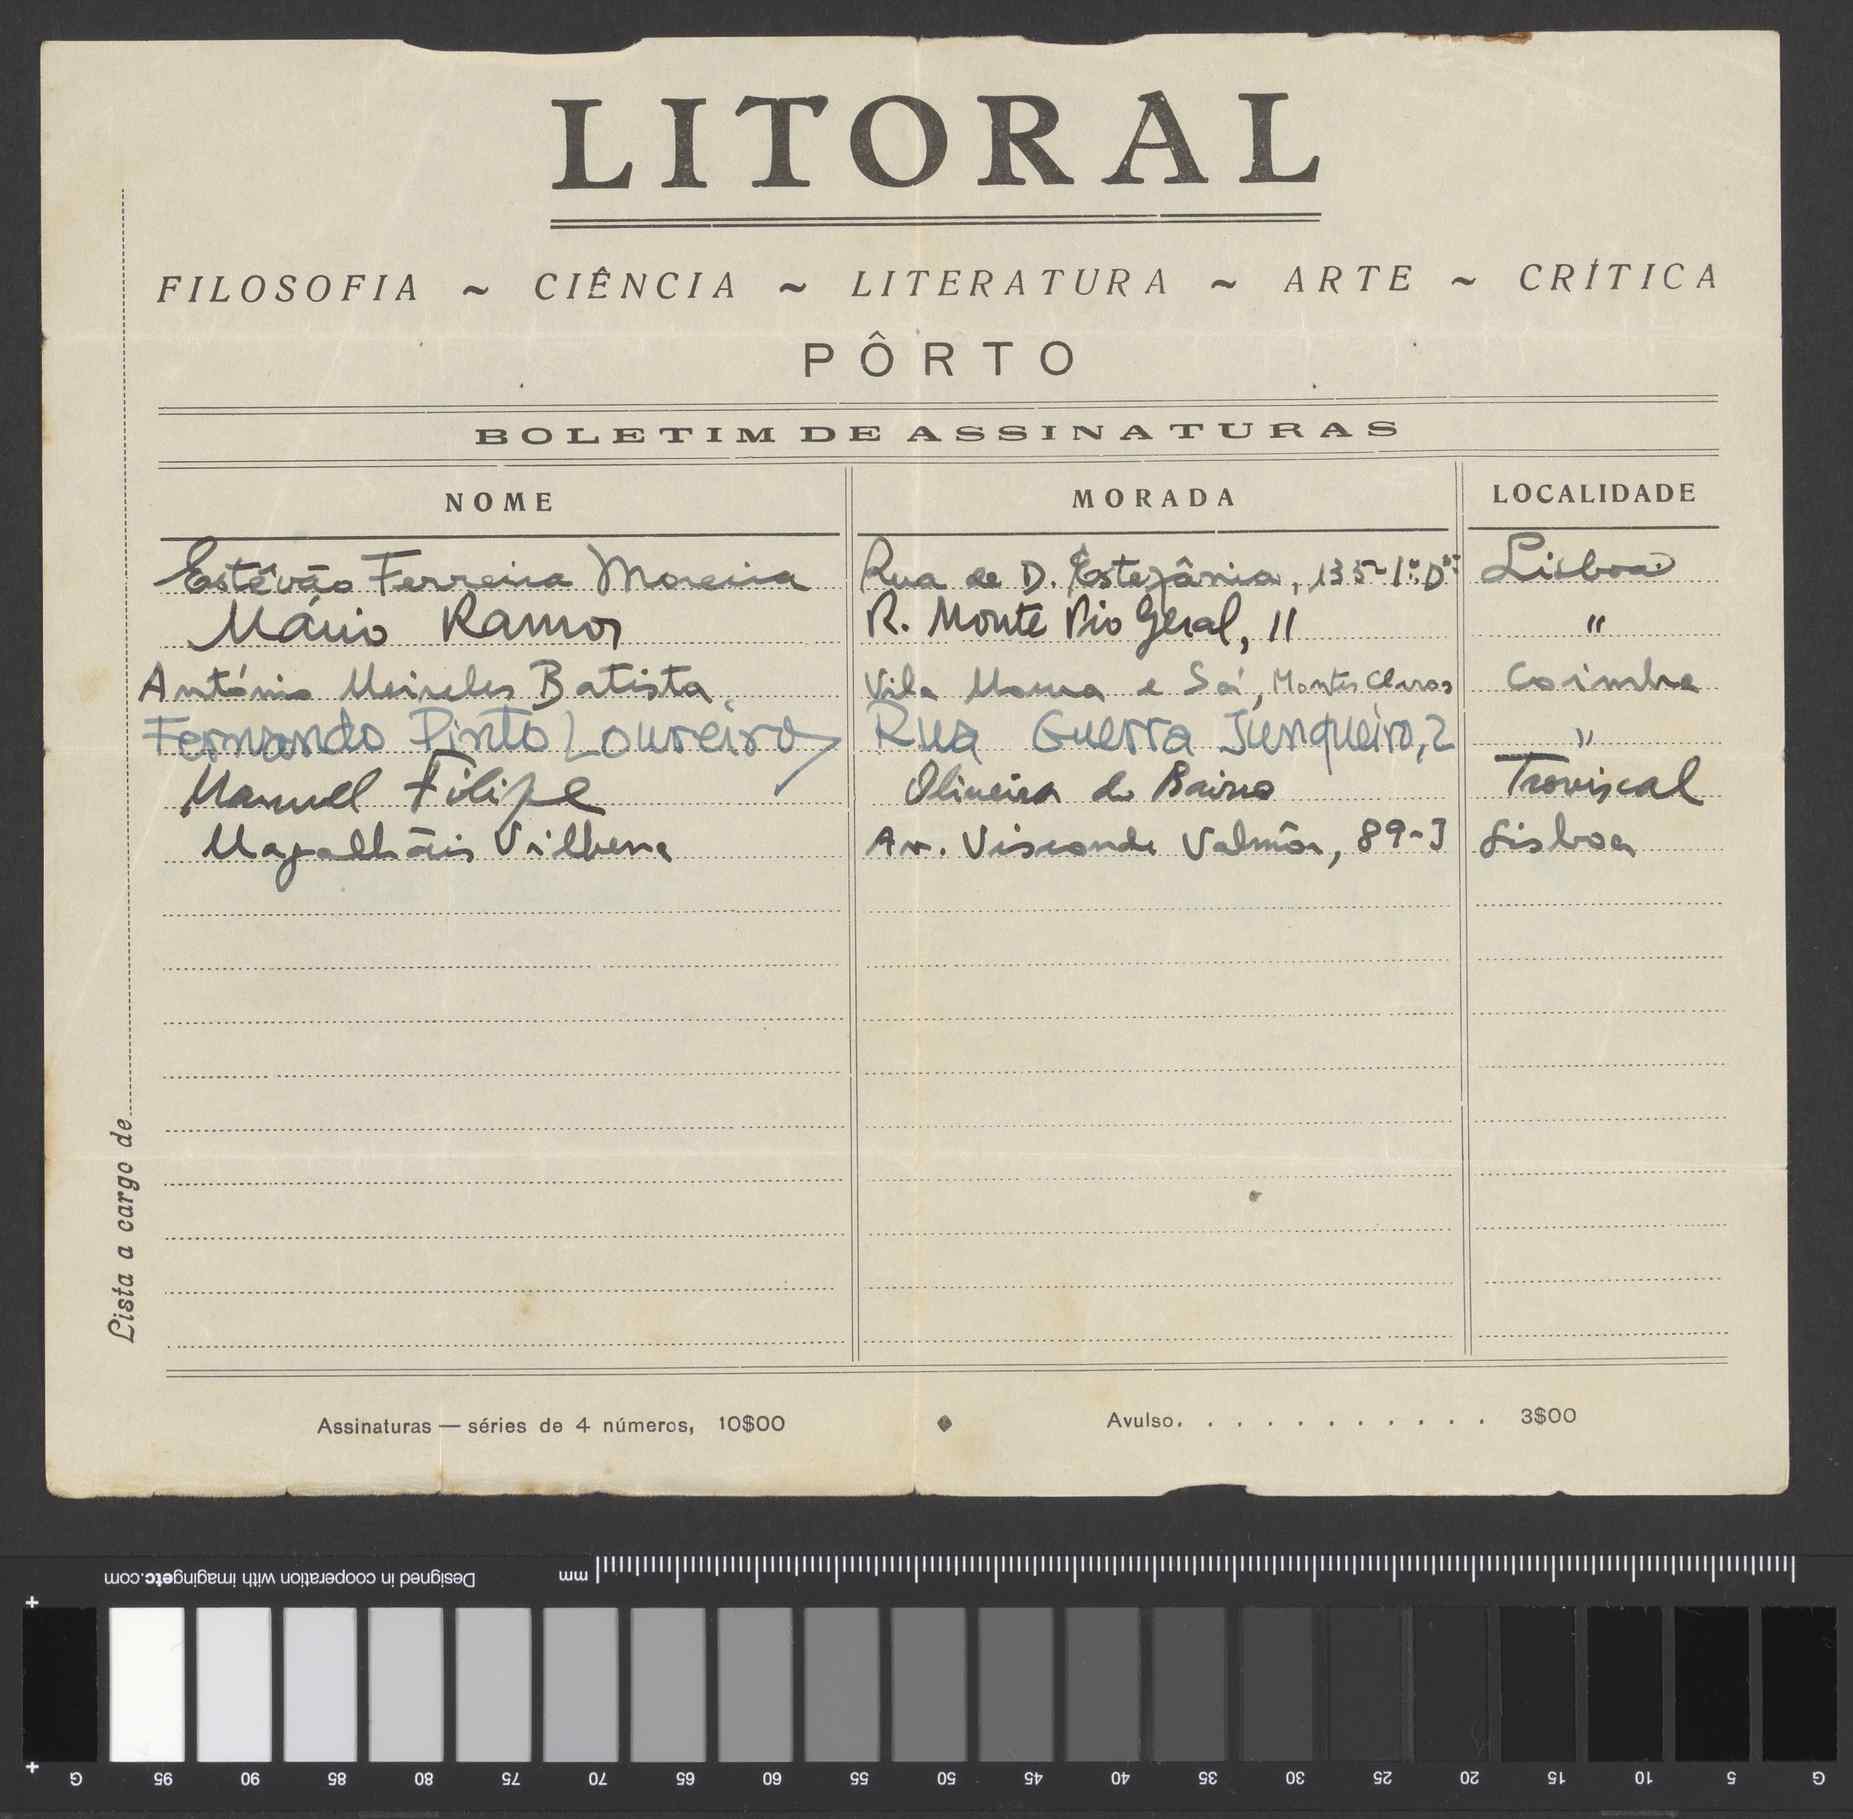 LITORAL
FILOSOFIA ~ CIÊNCIA ~ LITERATURA ~ ARTE ~ CRÍTICA
PÔRTO
BOLETIM DE ASSINATURAS
NOME MORADA LOCALIDADE
Estêvão Ferreira Moreira Rua de D. Estefânia, 135-1º.Dº. Lisboa
Mário Ramos R. Monte Pio Geral, 11 "
António Meireles Batista Vila Moura e Sá, Montes Claros Coimbra
Fernando Pinto Loureiro Rua Guerra Junqueiro, 2 "
Manuel Filipe Oliveira do Bairro Troviscal
Magalhãis Vilhena Av. Visconde Valmôr, 89-3 Lisboa
Lista a cargo de
Assinaturas — séries de 4 números, 10$00 Avulso. . . . . . . . . . . 3$00
Designed in cooperation with imagingetc.com mm
G 95 90 85 80 75 70 65 60 55 50 45 40 35 30 25 20 15 10 5 G